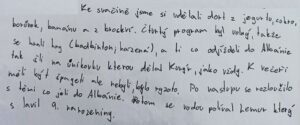 Ke svačině jsme si udělali dort z jogurtu, cukru,
borůvek, banánu a z broskví. Čtvrtý program byl volný, takže
se hráli hry (badbinton, házená), a ti co odjížděli do Albánie
tak šli na únikovku kterou dělal Kugr, jako vždy. K večeři
měli být špagety ale nebyly, bylo ryzoto. Po nástupu se rozloučilo
s těmi co jeli do Albánie. Potom se vodou poléval Lemur který
slavil 9. narozeniny.